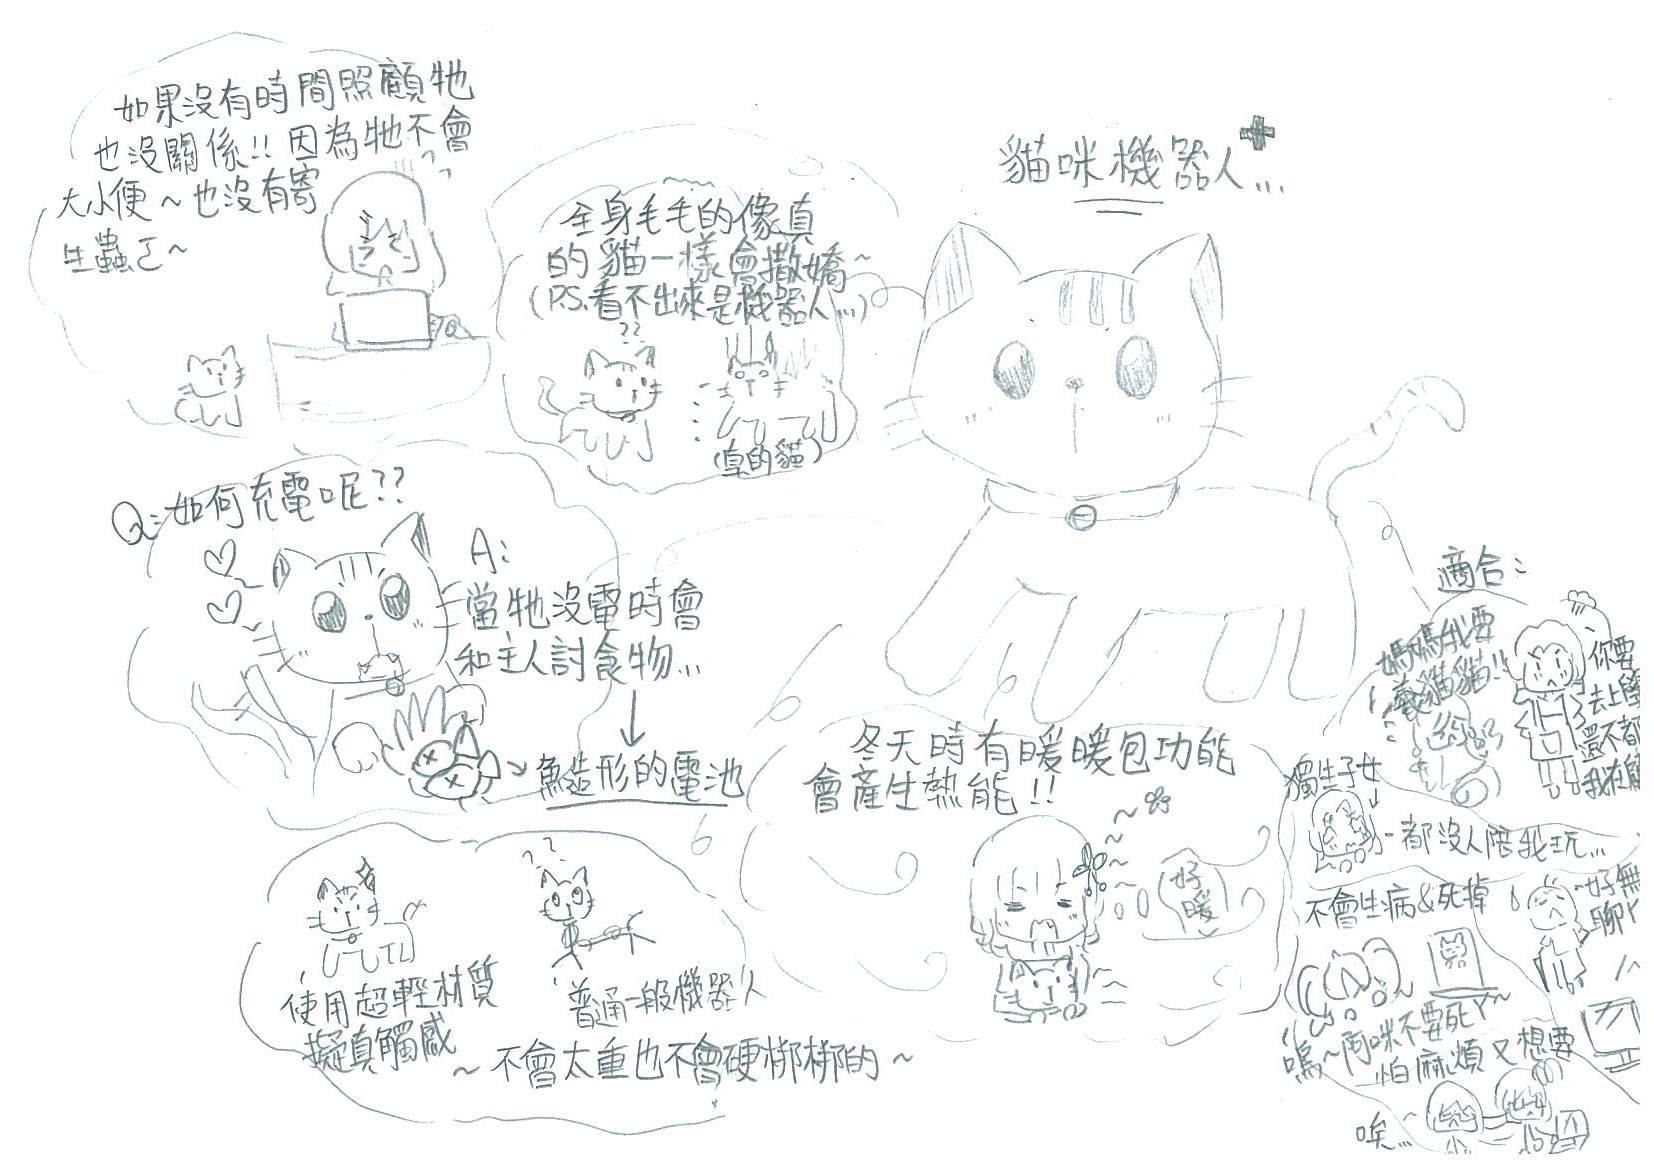 貓咪機器人...
如果沒有時間照顧牠
也沒關係!! 因為牠不會
大小便~也沒有寄
生蟲ㄛ~
全身毛毛的像真
的貓一樣會撒嬌~
(P.S.看不出來是機器人...)
??
(真的貓)
Q:如何充電呢??
A:
當牠沒電時會
和主人討食物...
魚造形的電池
使用超輕材質
擬真觸感
??
普通一般機器人
~不會太重也不會硬梆梆的~
冬天時有暖暖包功能
會產生熱能!!
好
暖
適合:
媽媽我要
養貓貓!!
你要
去上學
還不都
我在
獨生子女
都沒人陪我玩...
不會生病&死掉
嗚~阿咪不要死ㄚ~
~好無
聊ㄚ
怕麻煩又想要
唉...